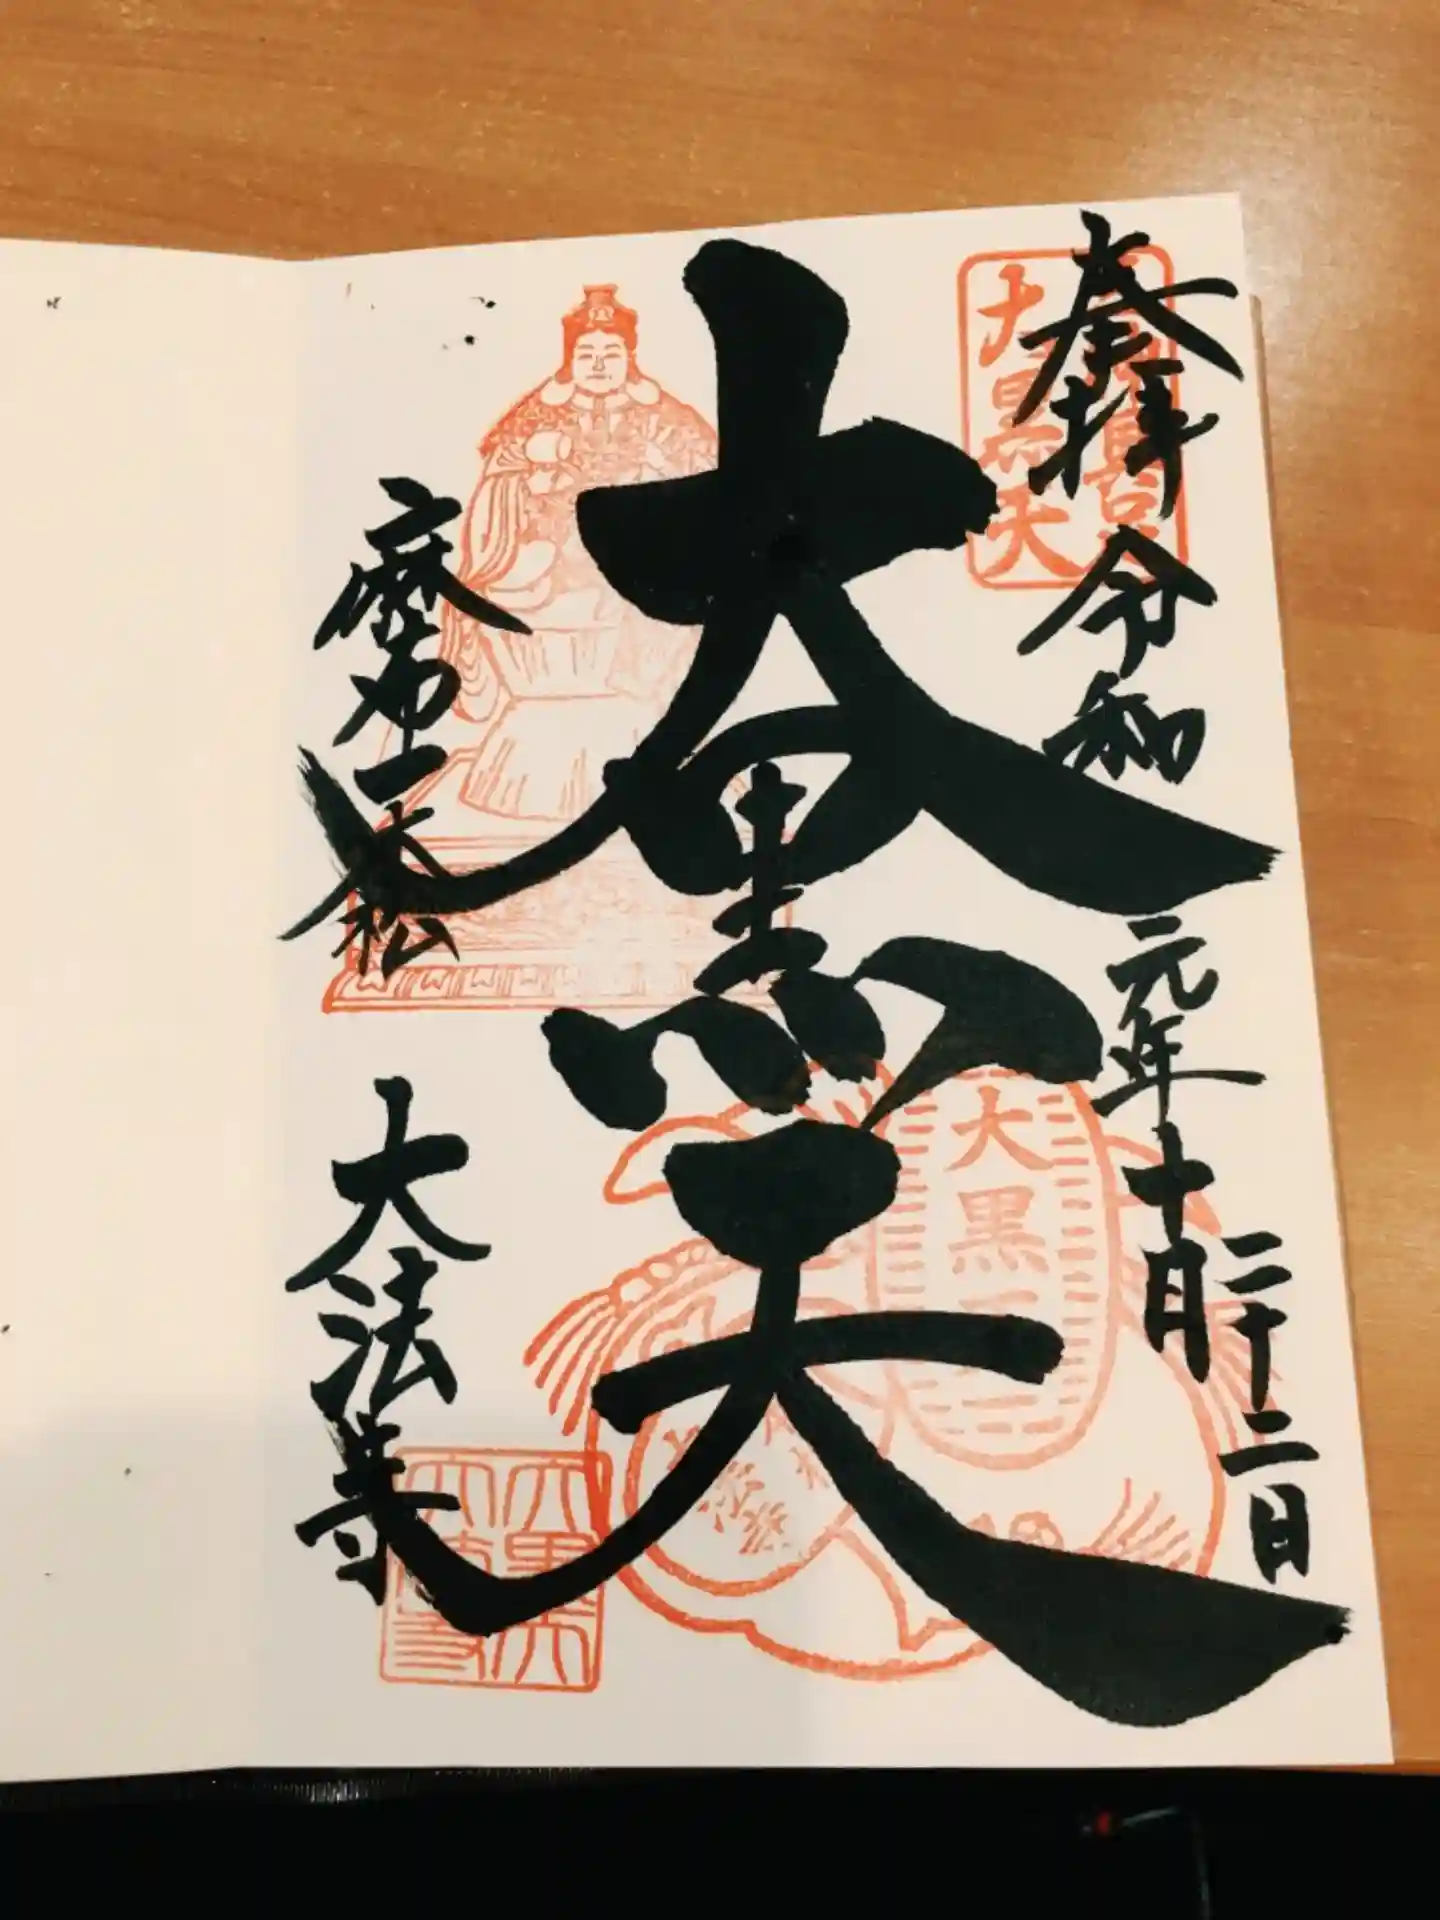 奉拝 令和元年十月二十二日
大黒天
麻布一本松
大法寺
大黒天
大黒天